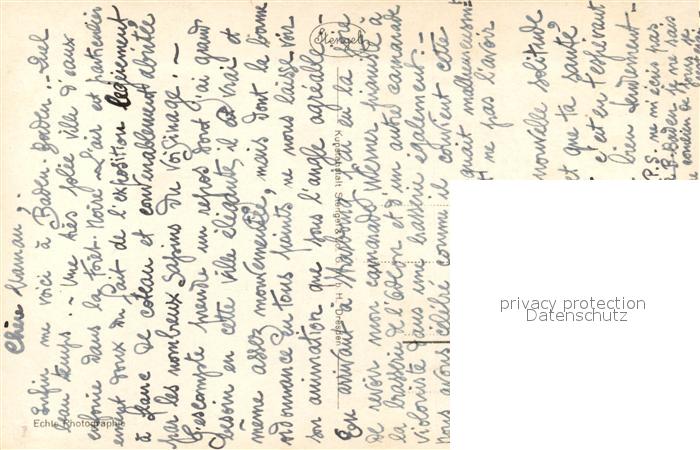 Chère Maman,
Enfin me voici à Baden-Baden. Quel
beau temps. ~ Une très jolie ville d'eaux
enfouie dans la Forêt-Noire. L'air est particulièr
ement doux du fait de l'exposition légèrement
à flanc de coteau et convenablement abritée
par les nombreux sapins du voisinage. ~
J'escompte prendre un repos dont j'ai grand
besoin en cette ville élégante, il est vrai et
même assez mouvementée, mais dont la bonne
ordonnance en tous points ne nous laisse voir
son animation que sous l'angle agréable. ~
En arrivant à Strasbourg j'ai eu la joie
de revoir mon camarade Werner pianiste à
la brasserie de l' et d'un autre camarade
violoniste dans une brasserie également. ~
nous avons célébré comme il convient cette
quait malheureusem
et ne pas l'avoir
nouvelle solitude
et que ta santé
c'est en t'espérant
bien tendrement
P.S. ne m'écris pas
à B. Baden je ne fais
Stengel
Echte Photographie
Dresden
privacy protection
Datenschutz